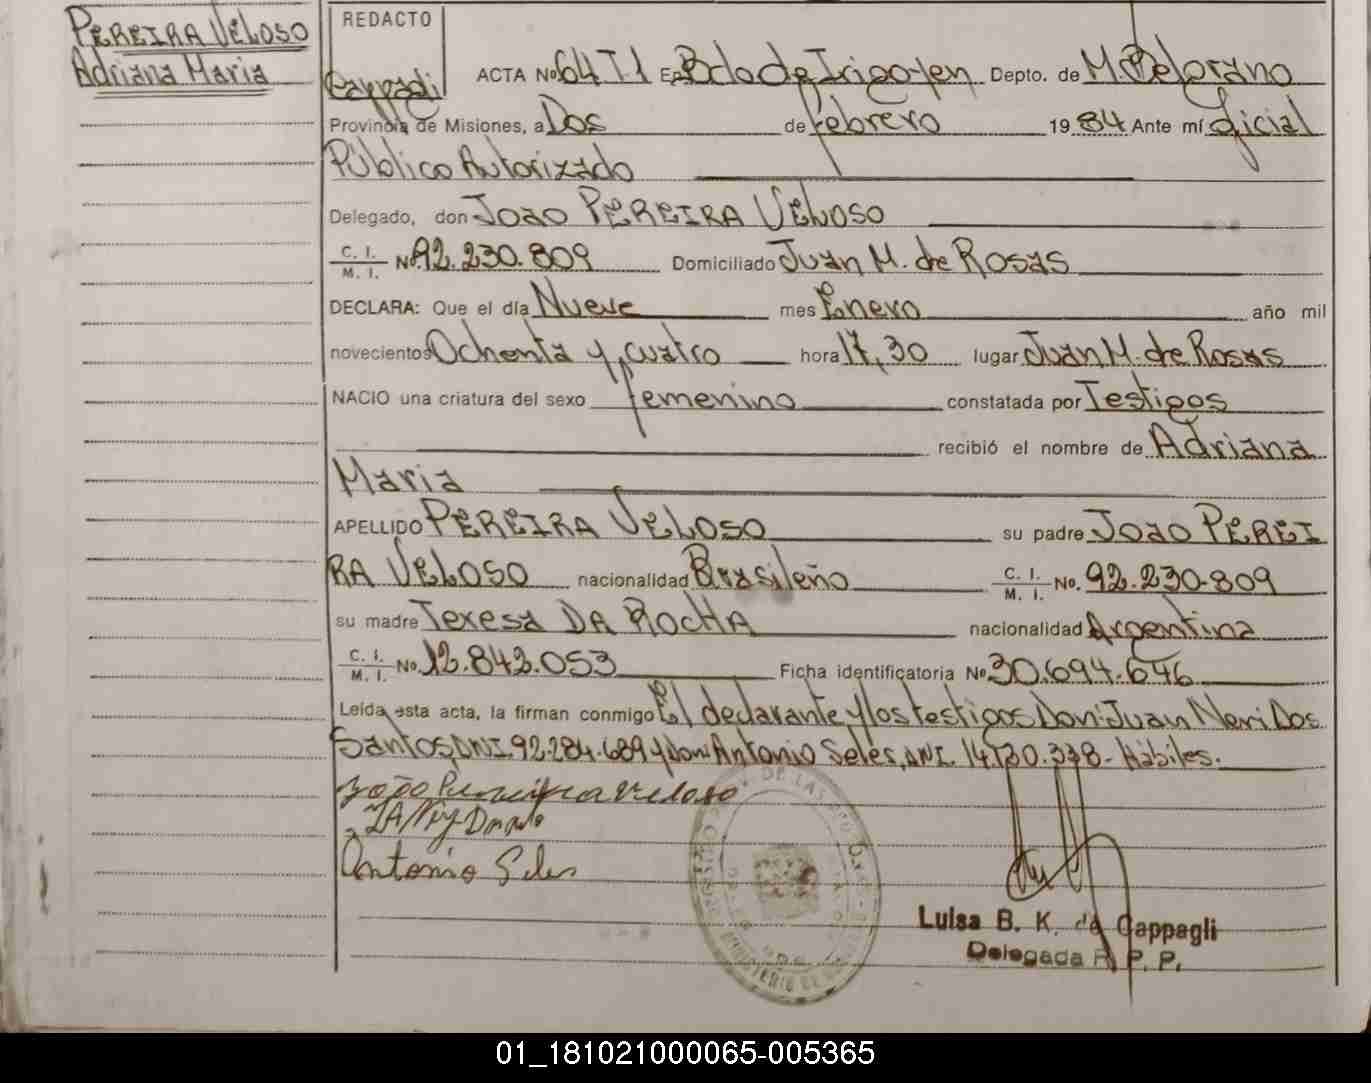 PEREIRA VELOSO
Adriana Maria
REDACTO
Cappagli
ACTA Nº 64 T 1 En Bdo de Irigoyen Depto. de M. Belgrano
Provincia de Misiones, a Dos de Febrero 1984 Ante mí Oficial
Público Autorizado
Delegado, don Joao PEREIRA VELOSO
C. I. / M. I. Nº 92.230.809 Domiciliado Juan M. de Rosas
DECLARA: Que el día Nueve mes Enero año mil
novecientos Ochenta y cuatro hora 17,30 lugar Juan M. de Rosas
NACIO una criatura del sexo femenino constatada por Testigos
recibió el nombre de Adriana
Maria
APELLIDO PEREIRA VELOSO su padre Joao PEREI
RA VELOSO nacionalidad Brasileño C. I. / M. I. No. 92.230.809
su madre Teresa DA ROCHA nacionalidad Argentina
C. I. / M. I. Nº 12.842.053 Ficha identificatoria Nº 30.694.646
Leída esta acta, la firman conmigo El declarante y los testigos Don: Juan Neri Dos
Santos, DNI. 92.284.689 y don: Antonio Seles, DNI. 14.130.338- Hábiles.
João Pereira Veloso
Antonio Seles
Luisa B. K. de Cappagli
Delegada R. P. P.
01_181021000065-005365